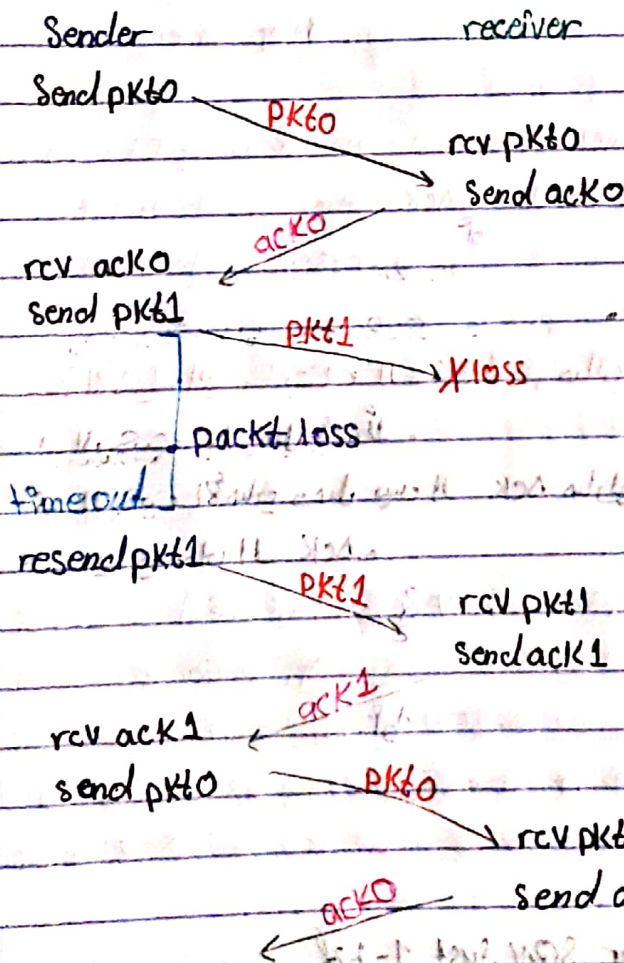 Sender receiver
Send pkt0
pkt0
rcv pkt0
send ack0
ack0
rcv ack0
send pkt1
pkt1
X loss
packt loss
timeout
resend pkt1
pkt1
rcv pkt1
send ack1
ack1
rcv ack1
send pkt0
pkt0
rcv pkt
send a
ack0